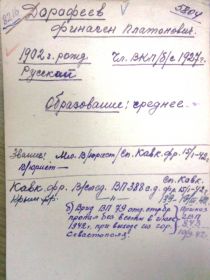 Дарафеев
Финаген Платонович.
1902 г. рожд Чл. ВКП/б/с 1927г.
Русский
Образование: среднее.
Звание: Мл. В/юрист/Сп. Кавк. фр. 15/1-42,
В/юрист
Кавк. фр. В/след. ВП 388 с.д.
Крым. фр.
б) Врид ВП 79 отд. стр. бр
пропал без вести в июле
1942 г. при выходе из гор.
Севастополя.